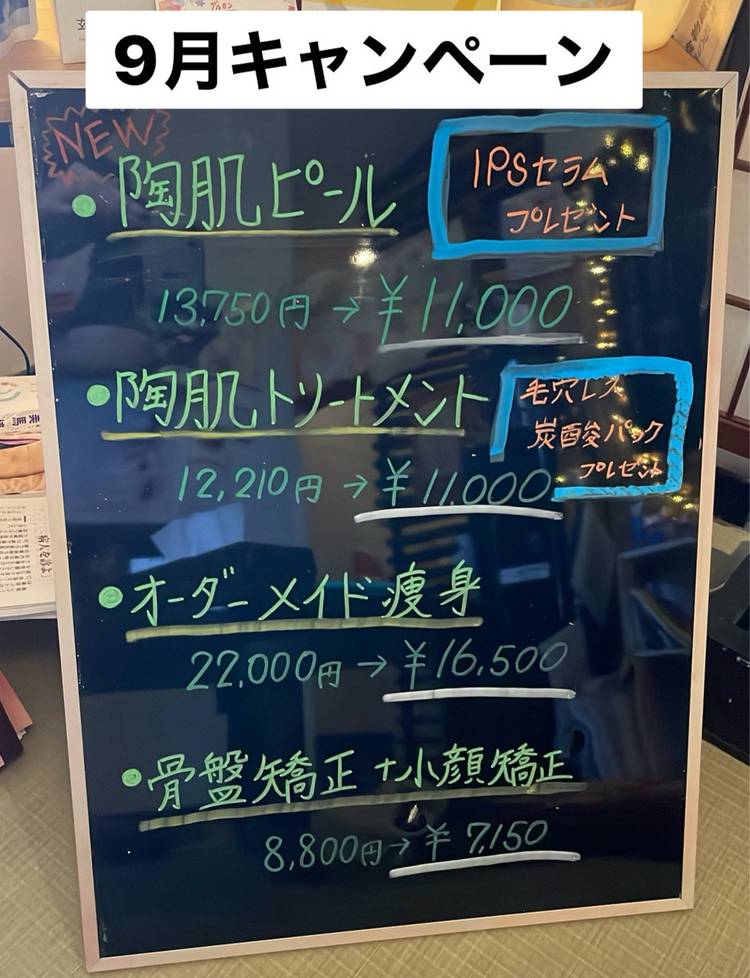 9月キャンペーン
NEW
・陶肌ピール
IPSセラム
プレゼント
13,750円→¥11,000
・陶肌トリートメント
毛穴レス
炭酸パック
プレゼント
12,210円→¥11,000
・オーダーメイド痩身
22,000円→¥16,500
・骨盤矯正+小顔矯正
8,800円→¥7,150